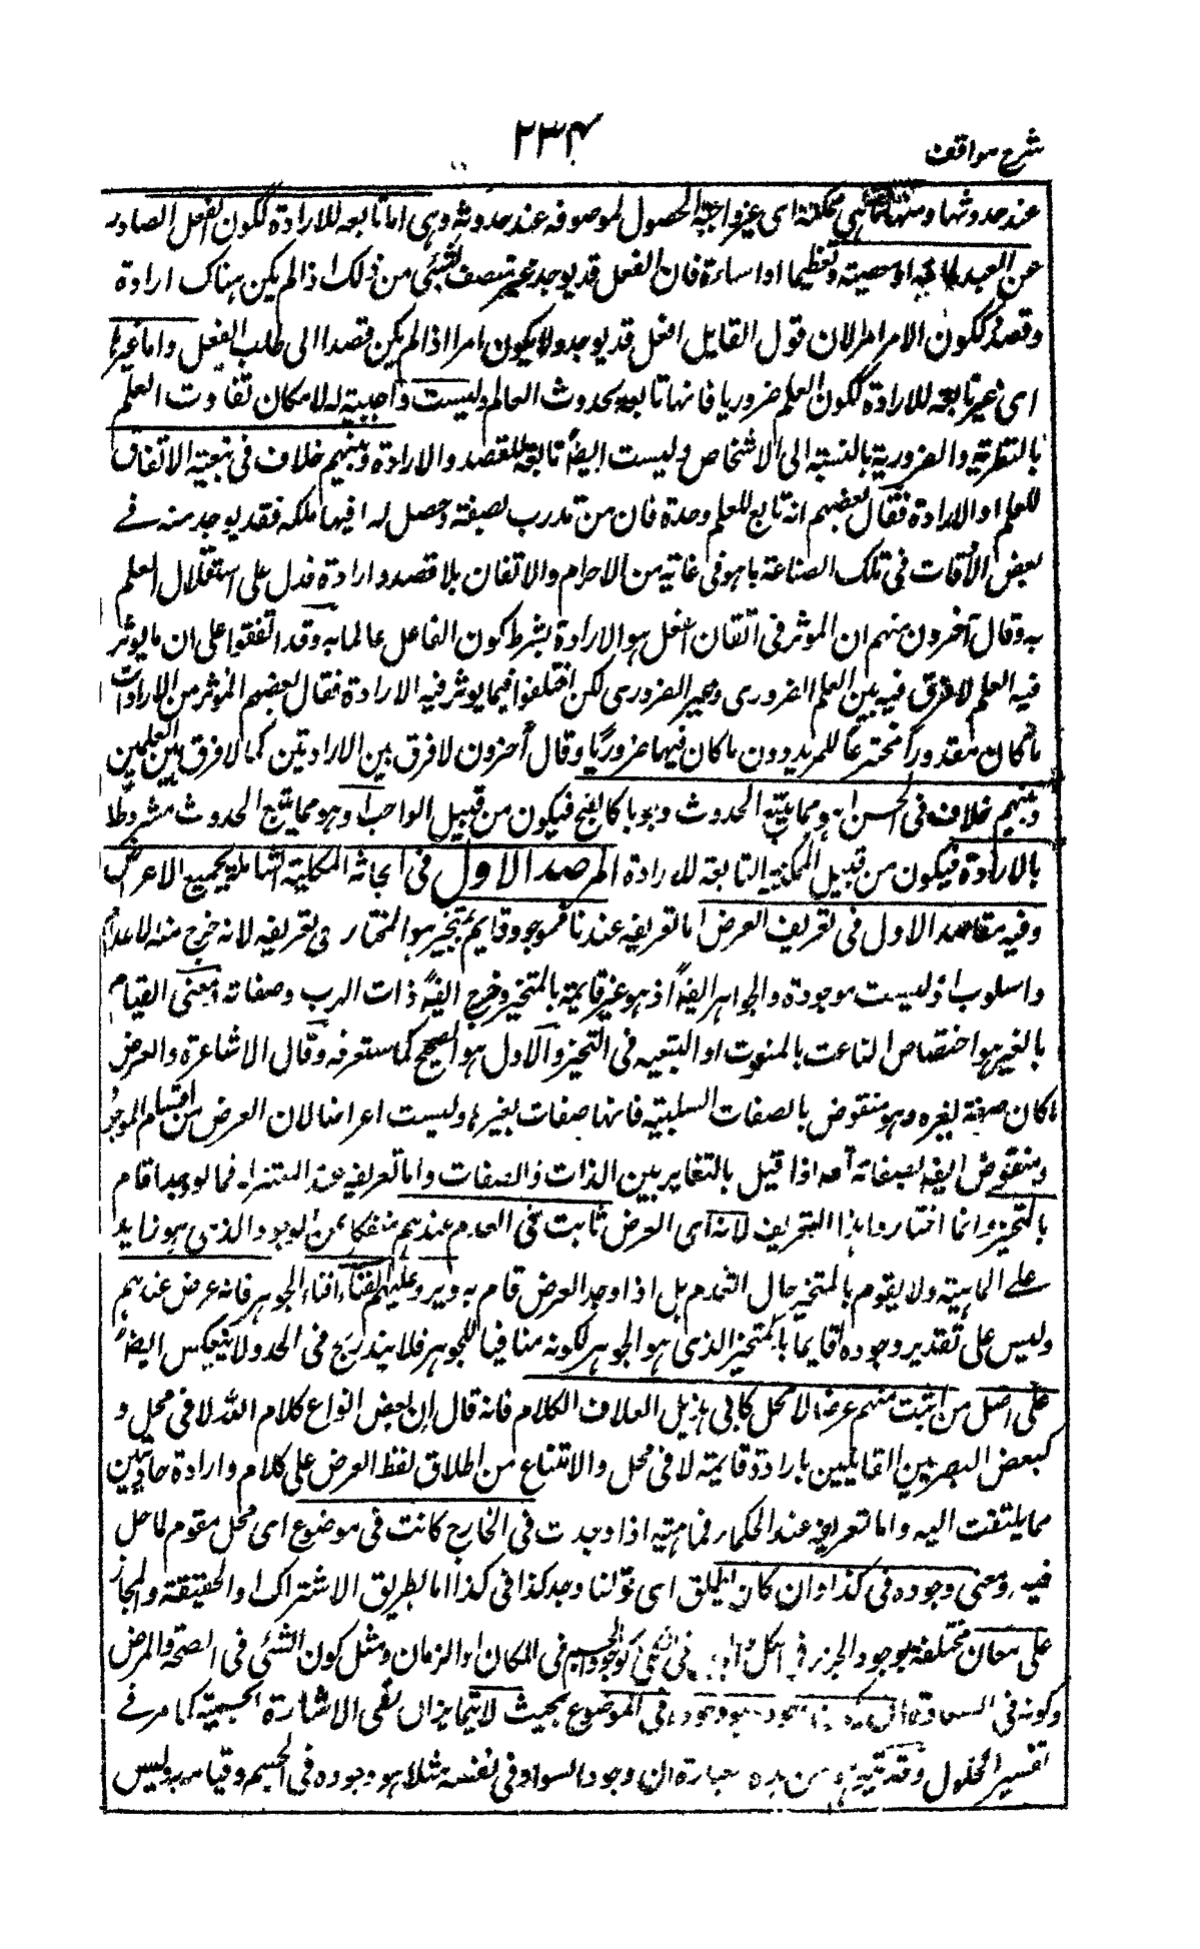 شرح مواقف
۲۳۴
عند حدوثها ومنها ما هي ممكنة اى غير واجبة الحصول لموصوفه عند حدوثه وهى اما تابعه للارادة ككون الفعل الصادر
عن العبد طاعة او معصية وتعظيما او اساءة فان الفعل قد يوجد غير متصف بشئى من ذلك اذا لم يكن هناك ارادة
وقصد وككون الامر امرا لان قول القايل افعل قد يوجد ولا يكون امرا اذا لم يكن قصدا الى طلب الفعل واما غيرها
اى غير تابعه للارادة ككون العلم ضروريا فانها تابعه لحدوث العالم وليست واجبية له لامكان تفاوت العلم
بالنظرية والضرورية بالنسبة الى الاشخاص وليست ايضاً تابعة للقصد والارادة وبينهم خلاف فى تبعية الاتفاق
للعلم او الارادة فقال بعضهم انه تابع للعلم وحدة فان من تدرب بصفة وحصل له فيها ملكه فقد يوجد منه فے
بعض الأوقات فى تلك الصناعة ما هو فى غاية من الاحرام والاتفان بلا قصد و ارادة فدل على استقلال العلم
به وقال آخرون منهم ان الموثر فى اتقان الفعل هو الارادة بشرط كون الفاعل عالما به وقد اتفقوا على ان ما يوثر
فيه العلم لا فرق فيه بين العلم الضرورى وغير الضرورى لكن اختلفوا فيما يوثر فيه الارادة فقال بعضهم الموثر من الارادات
ما كان مقدوراً مخترعاً للمريد دون ما كان فيها ضروريًا وقال آخرون لا فرق بين الارادتين كما لا فرق بين العلمين
وبينهم خلاف فى الحسن اهو مما يتبع الحدوث وجوبا كالقبح فيكون من قبيل الواجب او هو مما يتبع الحدوث مشروطا
بالارادة فيكون من قبيل الممكنة التابعة للارادة المرصد الاول فى ابحاثه الكلية الشاملة لجميع الاعراض
وفيه مقاصد الاول فى تعريف العرض اما تعريفه عندنا فموجود قايم بمتحيز هو المختار فى تعريفه لانه خرج منه الاعدام
واسلوب اذ ليست موجودة والجواهر ايضاً اذ هو غير قايمة بالمتحيز وخرج ايضاً ذات الرب وصفاته ومعنى القيام
بالغير هو اختصاص الناعت بالمنعوت او التبعيه فى التحيز والاول هو الصحيح كما ستعرفه وقال الاشاعرة والعرض
ما كان صفة لغيره وهو منقوض بالصفات السلبية فانها صفات لغيرها وليست اعراضا لان العرض من اقسام الموجود
ومنقوض ايضا بصفاته تعالى اذا قيل بالتغاير بين الذات والصفات واما تعريفه عند المعتزلة فما لو وجد لقام
بالتحيز وانما اختاروا هذا التعريف لانه اى العرض ثابت فى العدم عندهم منفكا عن الوجود الذى هو زايد
على الماهية ولا يقوم بالمتحيز حال العدم بل اذا وجد العرض قام به ويرد عليهم الفناء افناء الجوهر فانه عرض عندهم
وليس على تقدير وجوده قايماً بالمتحيز الذى هو الجوهر لكونه منافيا للجوهر فلا يندرج فى الحد ولا ينعكس ايضاً
على اصل من اثبت منهم عرضا لا محل كابى هذيل العلاف الكلام فانه قال ان بعض انواع كلام الله لا فى محل و
كبعض البصريين القايلين بارادة قايمة لا فى محل والامتناع من اطلاق لفظ العرض على كلام وارادة حادثين
مما يلتفت اليه واما تعريفه عند الحكماء فماهية اذا وجدت فى الخارج كانت فى موضوع اى محل مقوم لما حل
فيه ومعنى وجوده فى كذا وان كان يطلق اى قولنا وجد كذا فى كذا اما بطريق الاشتراك او الحقيقة والمجاز
على معان مختلفة كوجود الجزء فى الكل فى الشئى كوجود الجسم فى المكان او الزمان ومثل كون الشئى فى الصحة والمرض
وكونه فى السعادة فى الموضوع بحيث لا يتمايزان فى الاشارة الحسية كما مر فے
تفسير الحلول وقد من هذه عبارة ان وجود السواد فى نفسه مثلا هو وجوده فى الجسم وقيامه به وليس